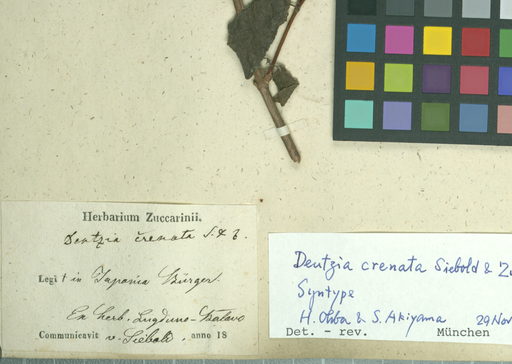 Herbarium Zuccarinii.
Deutzia crenata S. & Z.
Legit in Japonia Bürger.
Ex herb. Lugduno-Batavo
Communicavit v. Siebold. anno 18
Deutzia crenata Siebold & Zu
Syntype
H. Ohba & S. Akiyama 29 Nov
Det. - rev. München